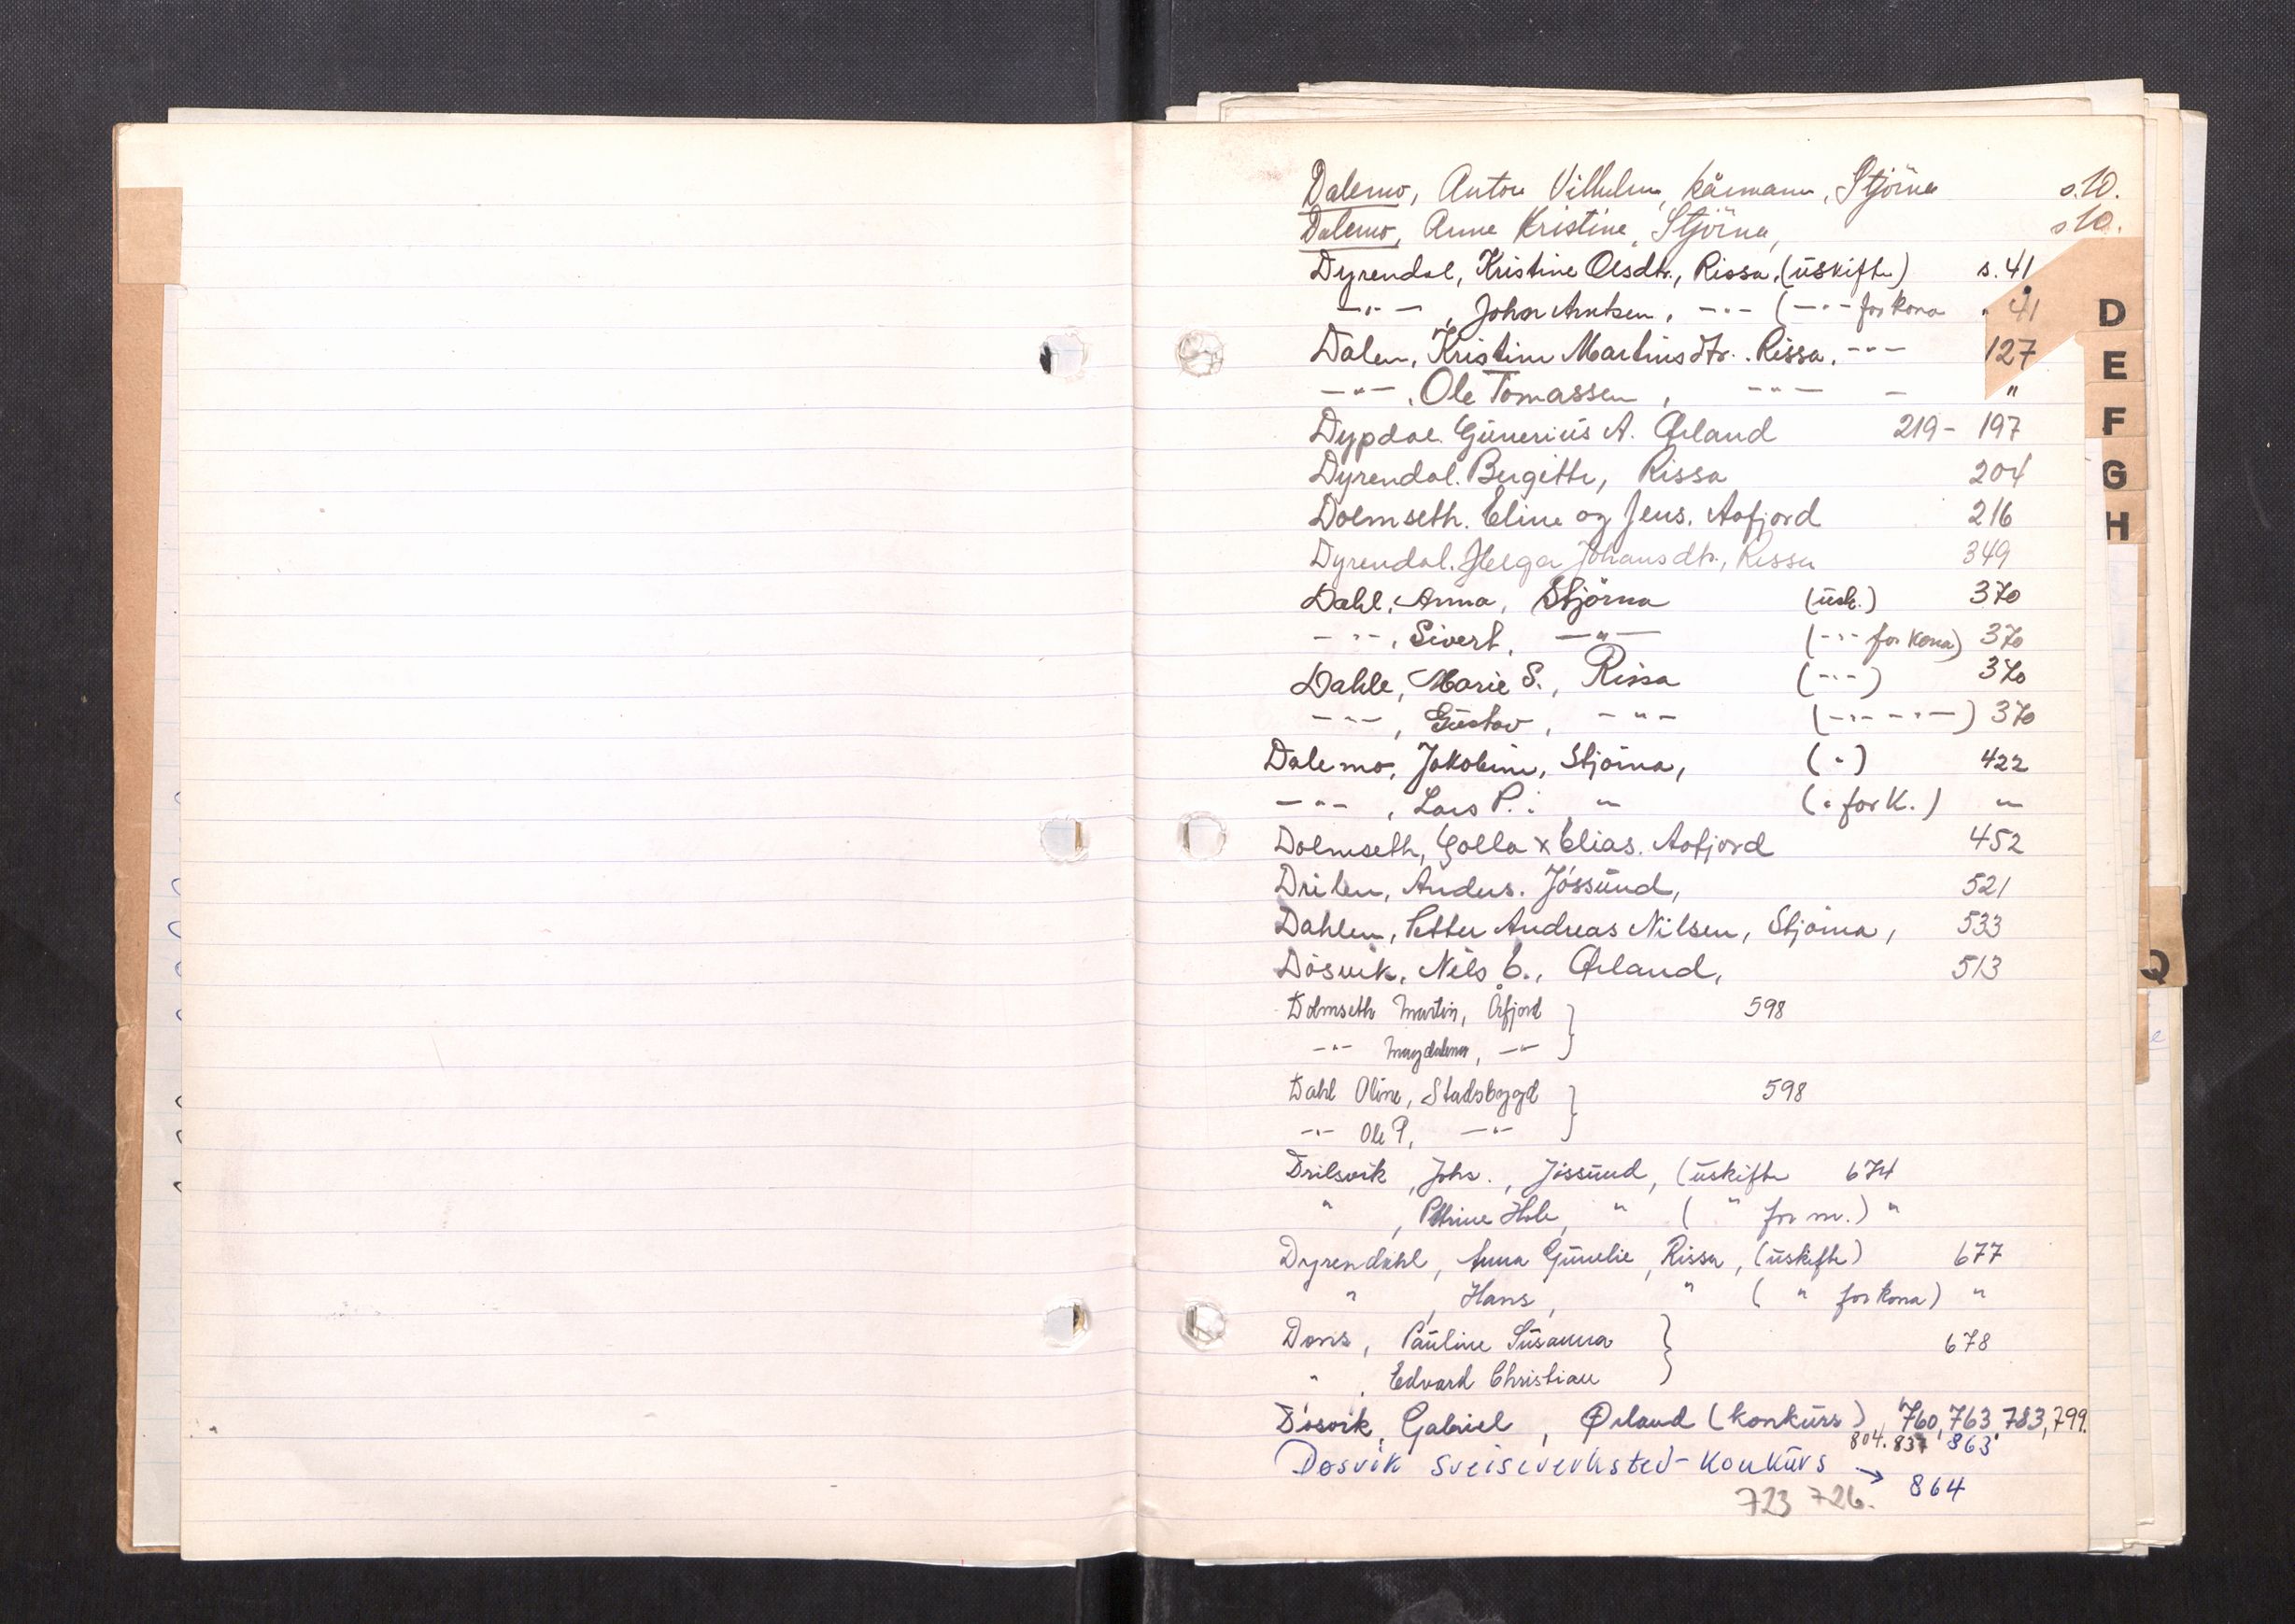 Dalemo, Anton Vilhelm, kårmann, Stjörna s.10.
Dalemo, Anne Kristine, Stjörna, s10.
Dyrendal, Kristine Olsdtr., Rissa, (uskifte) s. 41
—"— , John Arntsen, —"— (—"— for kona " 41
Dalen, Kristine Martinsdtr. Rissa, —"— 127
—"—, Ole Tomassen, —"— — "
Dypdal. Gunerius A. Ørland 219- 197
Dyrendal. Bergitte, Rissa 204
Dolmseth. Eline og Jens. Aafjord 216
Dyrendal. Helga Johansdtr., Rissa 349
Dahl, Anna, Stjörna (usk.) 370
—"—, Sivert, —"— (—"— for kona) 370
Dahle, Marie S., Rissa (—"—) 370
—"—, Gustav, —"— (—"— —"—) 370
Dalemo, Jakobine, Stjörna, (") 422
—"— , Lars P.: " (" for K.) "
Dolmseth, Golla x Elias. Aafjord 452
Drilen, Anders. Jössund, 521
Dahlen, Petter Andreas Nilsen, Stjörna, 533
Dösvik, Nils E., Ørland, 513
Dolmseth Martin, Åfjord } 598
—"— Magdalena, —"—
Dahl Oline, Stadsbygd } 598
—"— Ole P, —"—
Drilsvik, Johs., Jössund, (uskifte 674
" , Petrine Hole, " ( " for m.) "
Dyrendahl, Anna Gunelie, Rissa, (uskifte) 677
" , Hans, " ( " for kona) "
Dons, Pauline Susanna } 678
" , Edvard Christian
Dösvik, Gabriel, Ørland (konkurs) 760, 763, 783, 799.
804. 837 863.
Døsvik sveiseverksted - konkurs → 864
723 726.
D
E
F
G
H
Q